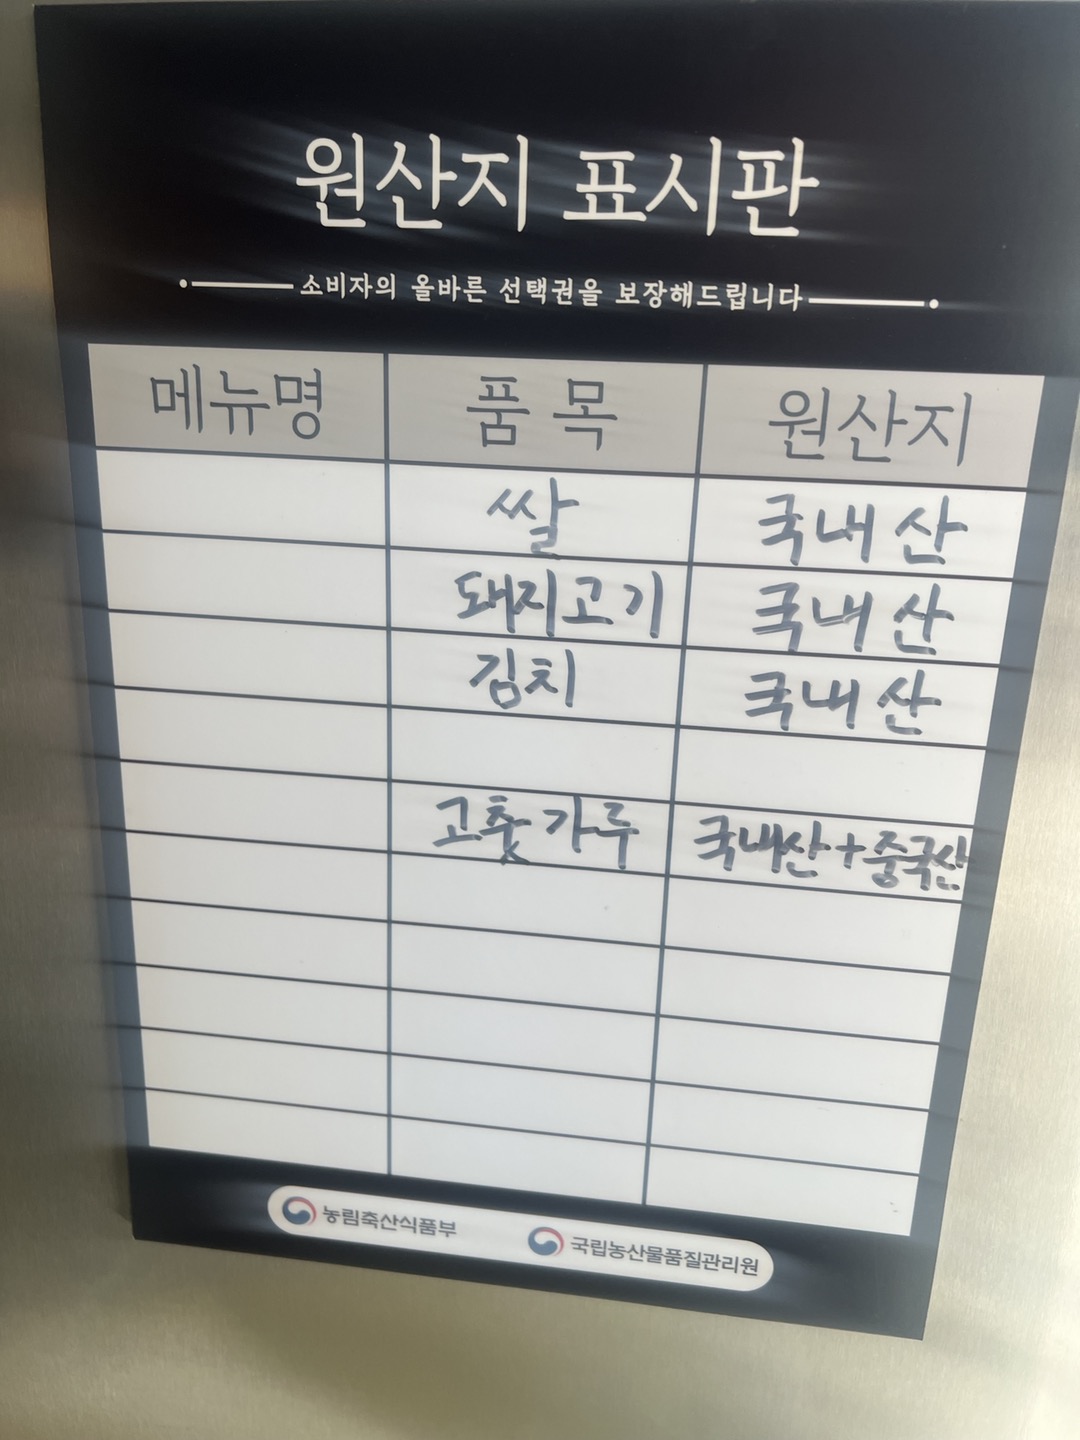 원산지 표시판
소비자의 올바른 선택권을 보장해드립니다
메뉴명 품 목 원산지
쌀 국내산
돼지고기 국내산
김치 국내산
고춧가루 국내산+중국산
농림축산식품부 국립농산물품질관리원